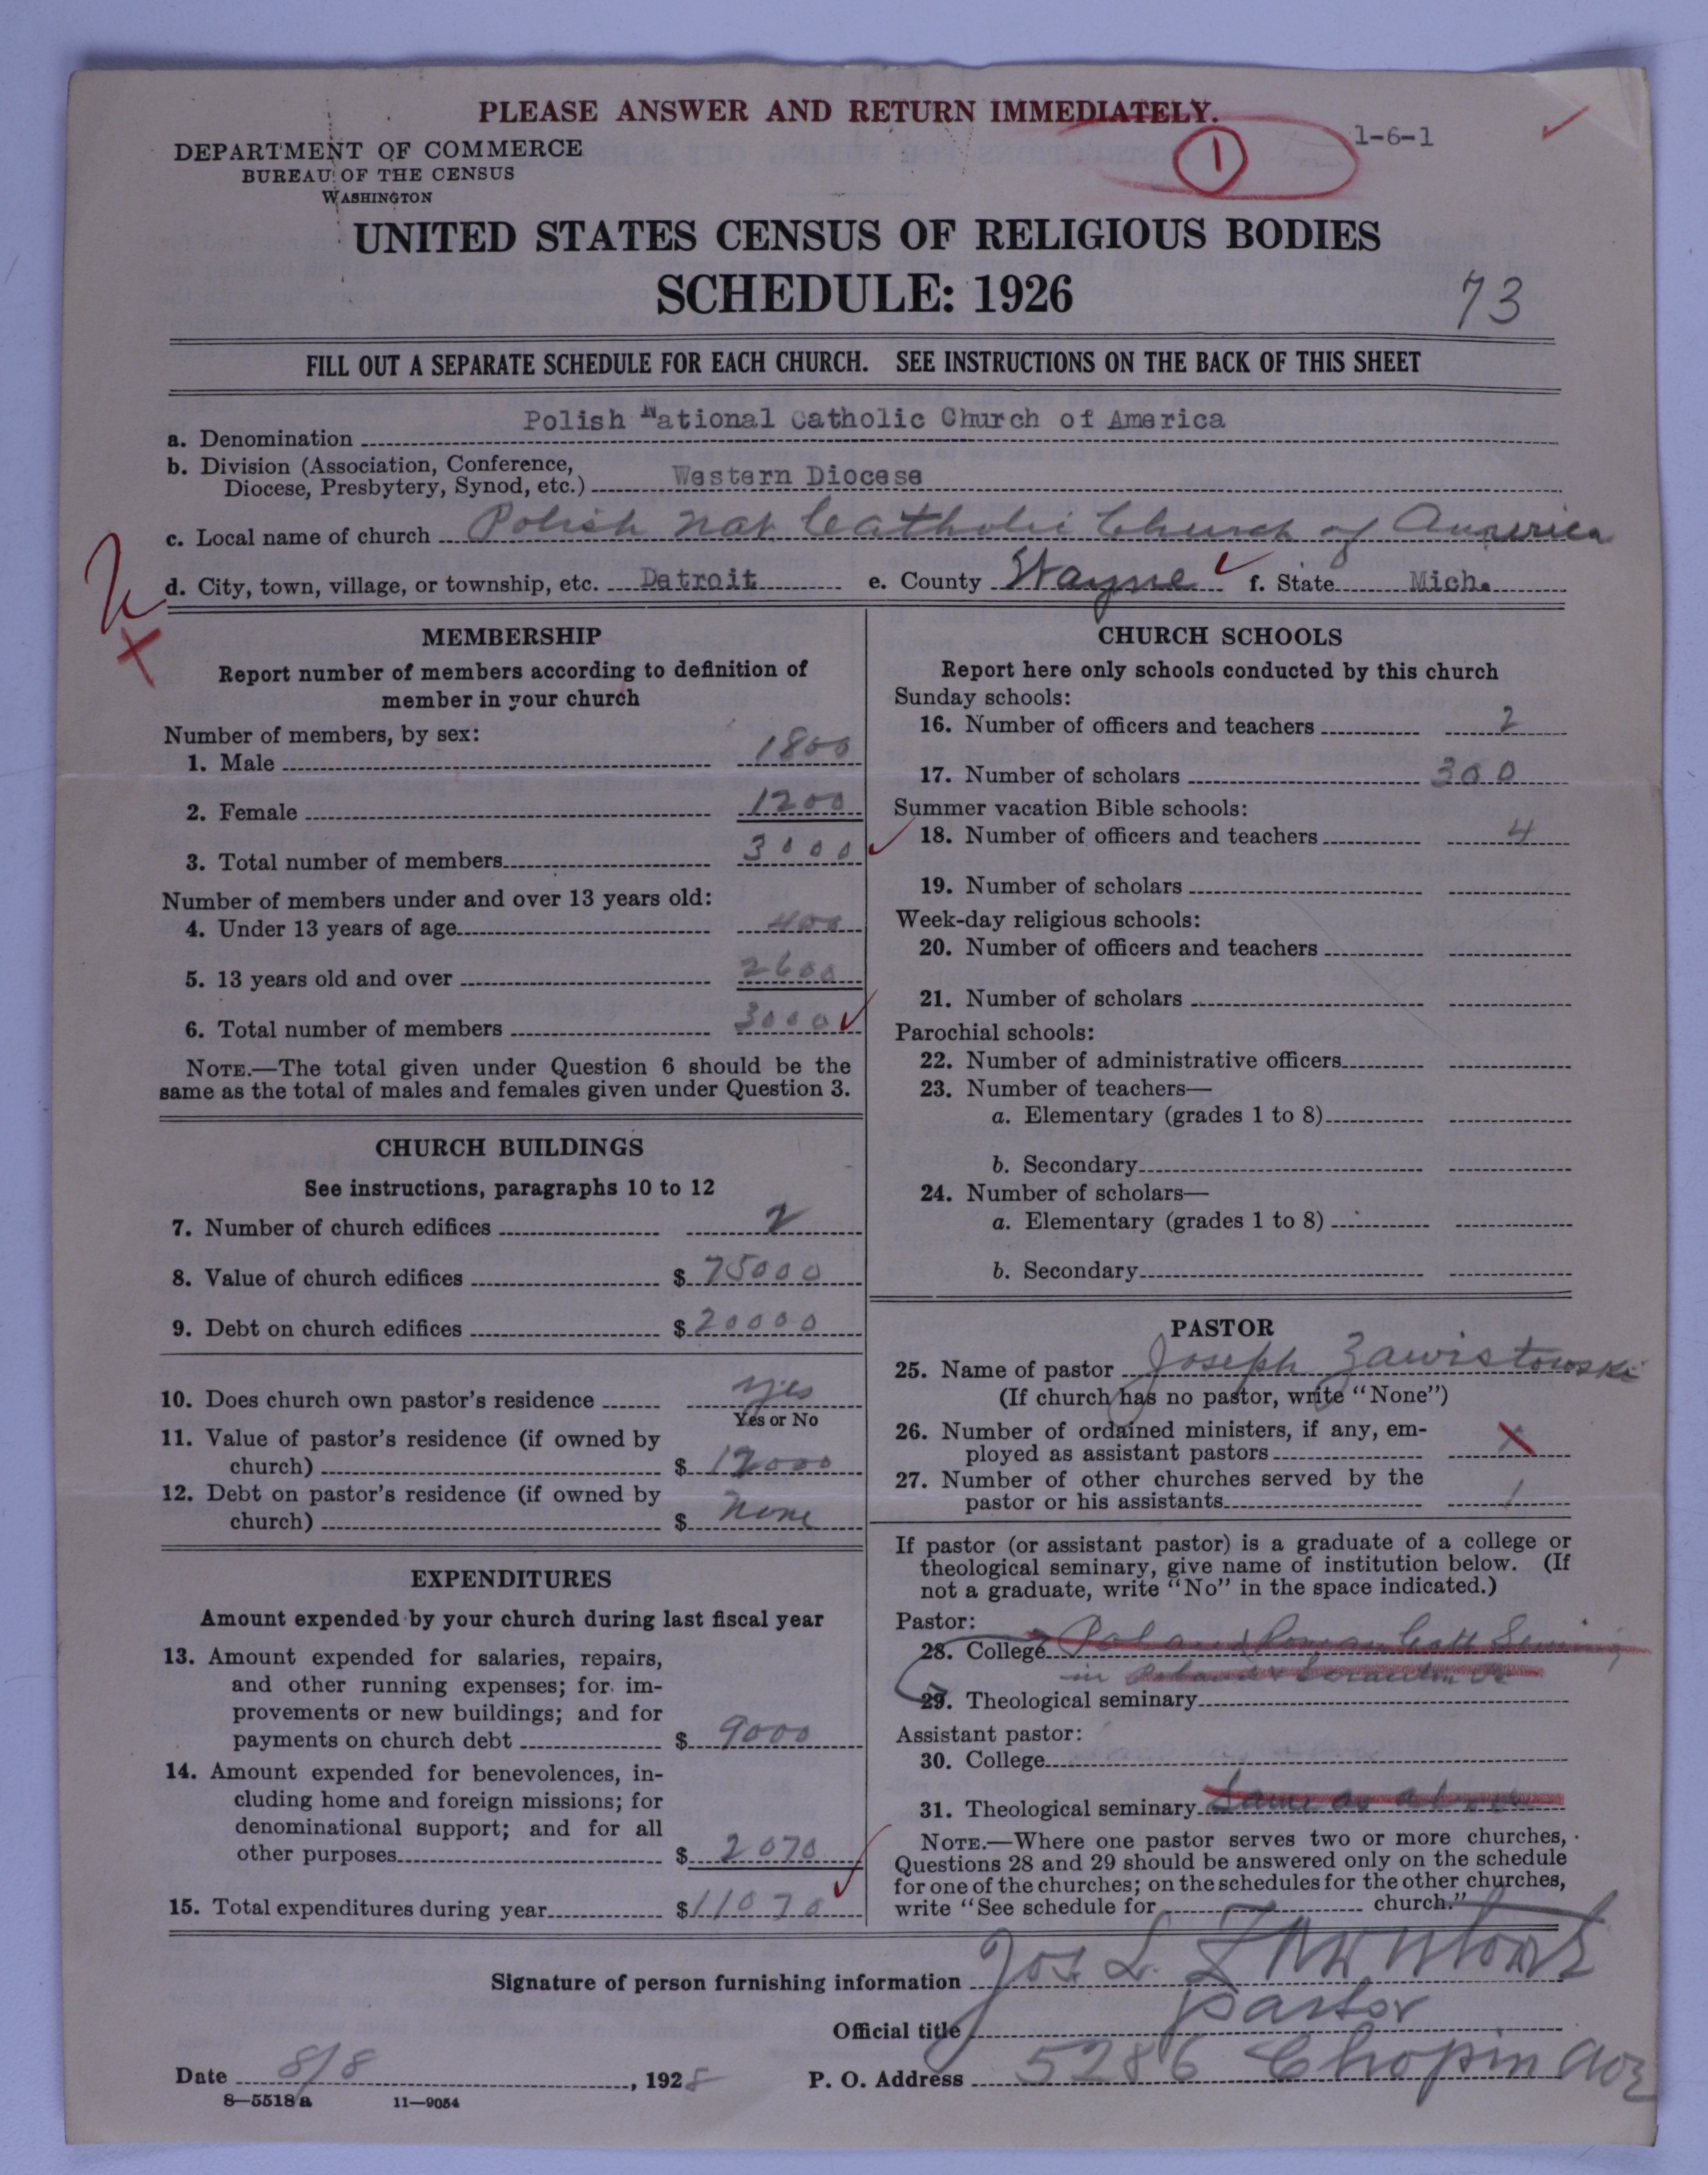 PLEASE ANSWER AND RETURN IMMEDIATELY.
1
1-6-1
DEPARTMENT OF COMMERCE
BUREAU OF THE CENSUS
WASHINGTON
UNITED STATES CENSUS OF RELIGIOUS BODIES
SCHEDULE: 1926
73
FILL OUT A SEPARATE SCHEDULE FOR EACH CHURCH. SEE INSTRUCTIONS ON THE BACK OF THIS SHEET
a. Denomination Polish National Catholic Church of America
b. Division (Association, Conference,
Diocese, Presbytery, Synod, etc.) Western Diocese
c. Local name of church Polish Nat Catholic Church of America
d. City, town, village, or township, etc. Detroit e. County Wayne f. State Mich.
MEMBERSHIP
Report number of members according to definition of
member in your church
Number of members, by sex:
1. Male 1800
2. Female 1200
3. Total number of members 3000
Number of members under and over 13 years old:
4. Under 13 years of age 400
5. 13 years old and over 2600
6. Total number of members 3000
NOTE.—The total given under Question 6 should be the
same as the total of males and females given under Question 3.
CHURCH BUILDINGS
See instructions, paragraphs 10 to 12
7. Number of church edifices 2
8. Value of church edifices $ 75000
9. Debt on church edifices $ 20000
10. Does church own pastor's residence yes
Yes or No
11. Value of pastor's residence (if owned by
church) $ 12000
12. Debt on pastor's residence (if owned by
church) $ none
EXPENDITURES
Amount expended by your church during last fiscal year
13. Amount expended for salaries, repairs,
and other running expenses; for improvements or new buildings; and for
payments on church debt $ 9000
14. Amount expended for benevolences, including home and foreign missions; for
denominational support; and for all
other purposes $ 2070
15. Total expenditures during year $ 11070
CHURCH SCHOOLS
Report here only schools conducted by this church
Sunday schools:
16. Number of officers and teachers 2
17. Number of scholars 300
Summer vacation Bible schools:
18. Number of officers and teachers 4
19. Number of scholars
Week-day religious schools:
20. Number of officers and teachers
21. Number of scholars
Parochial schools:
22. Number of administrative officers
23. Number of teachers—
a. Elementary (grades 1 to 8)
b. Secondary
24. Number of scholars—
a. Elementary (grades 1 to 8)
b. Secondary
PASTOR
25. Name of pastor Joseph Zawistowski
(If church has no pastor, write "None")
26. Number of ordained ministers, if any, em-
ployed as assistant pastors
27. Number of other churches served by the
pastor or his assistants 1
If pastor (or assistant pastor) is a graduate of a college or
theological seminary, give name of institution below. (If
not a graduate, write "No" in the space indicated.)
Pastor:
28. College Poland Roman Cath
in Poland
29. Theological seminary
Assistant pastor:
30. College
31. Theological seminary Same as above
NOTE.—Where one pastor serves two or more churches,
Questions 28 and 29 should be answered only on the schedule
for one of the churches; on the schedules for the other churches,
write "See schedule for church."
Signature of person furnishing information Jos L. Zawistowski
Official title pastor
Date 8/8, 1928 P. O. Address 5286 Chopin Ave
8—5518 a 11—9054